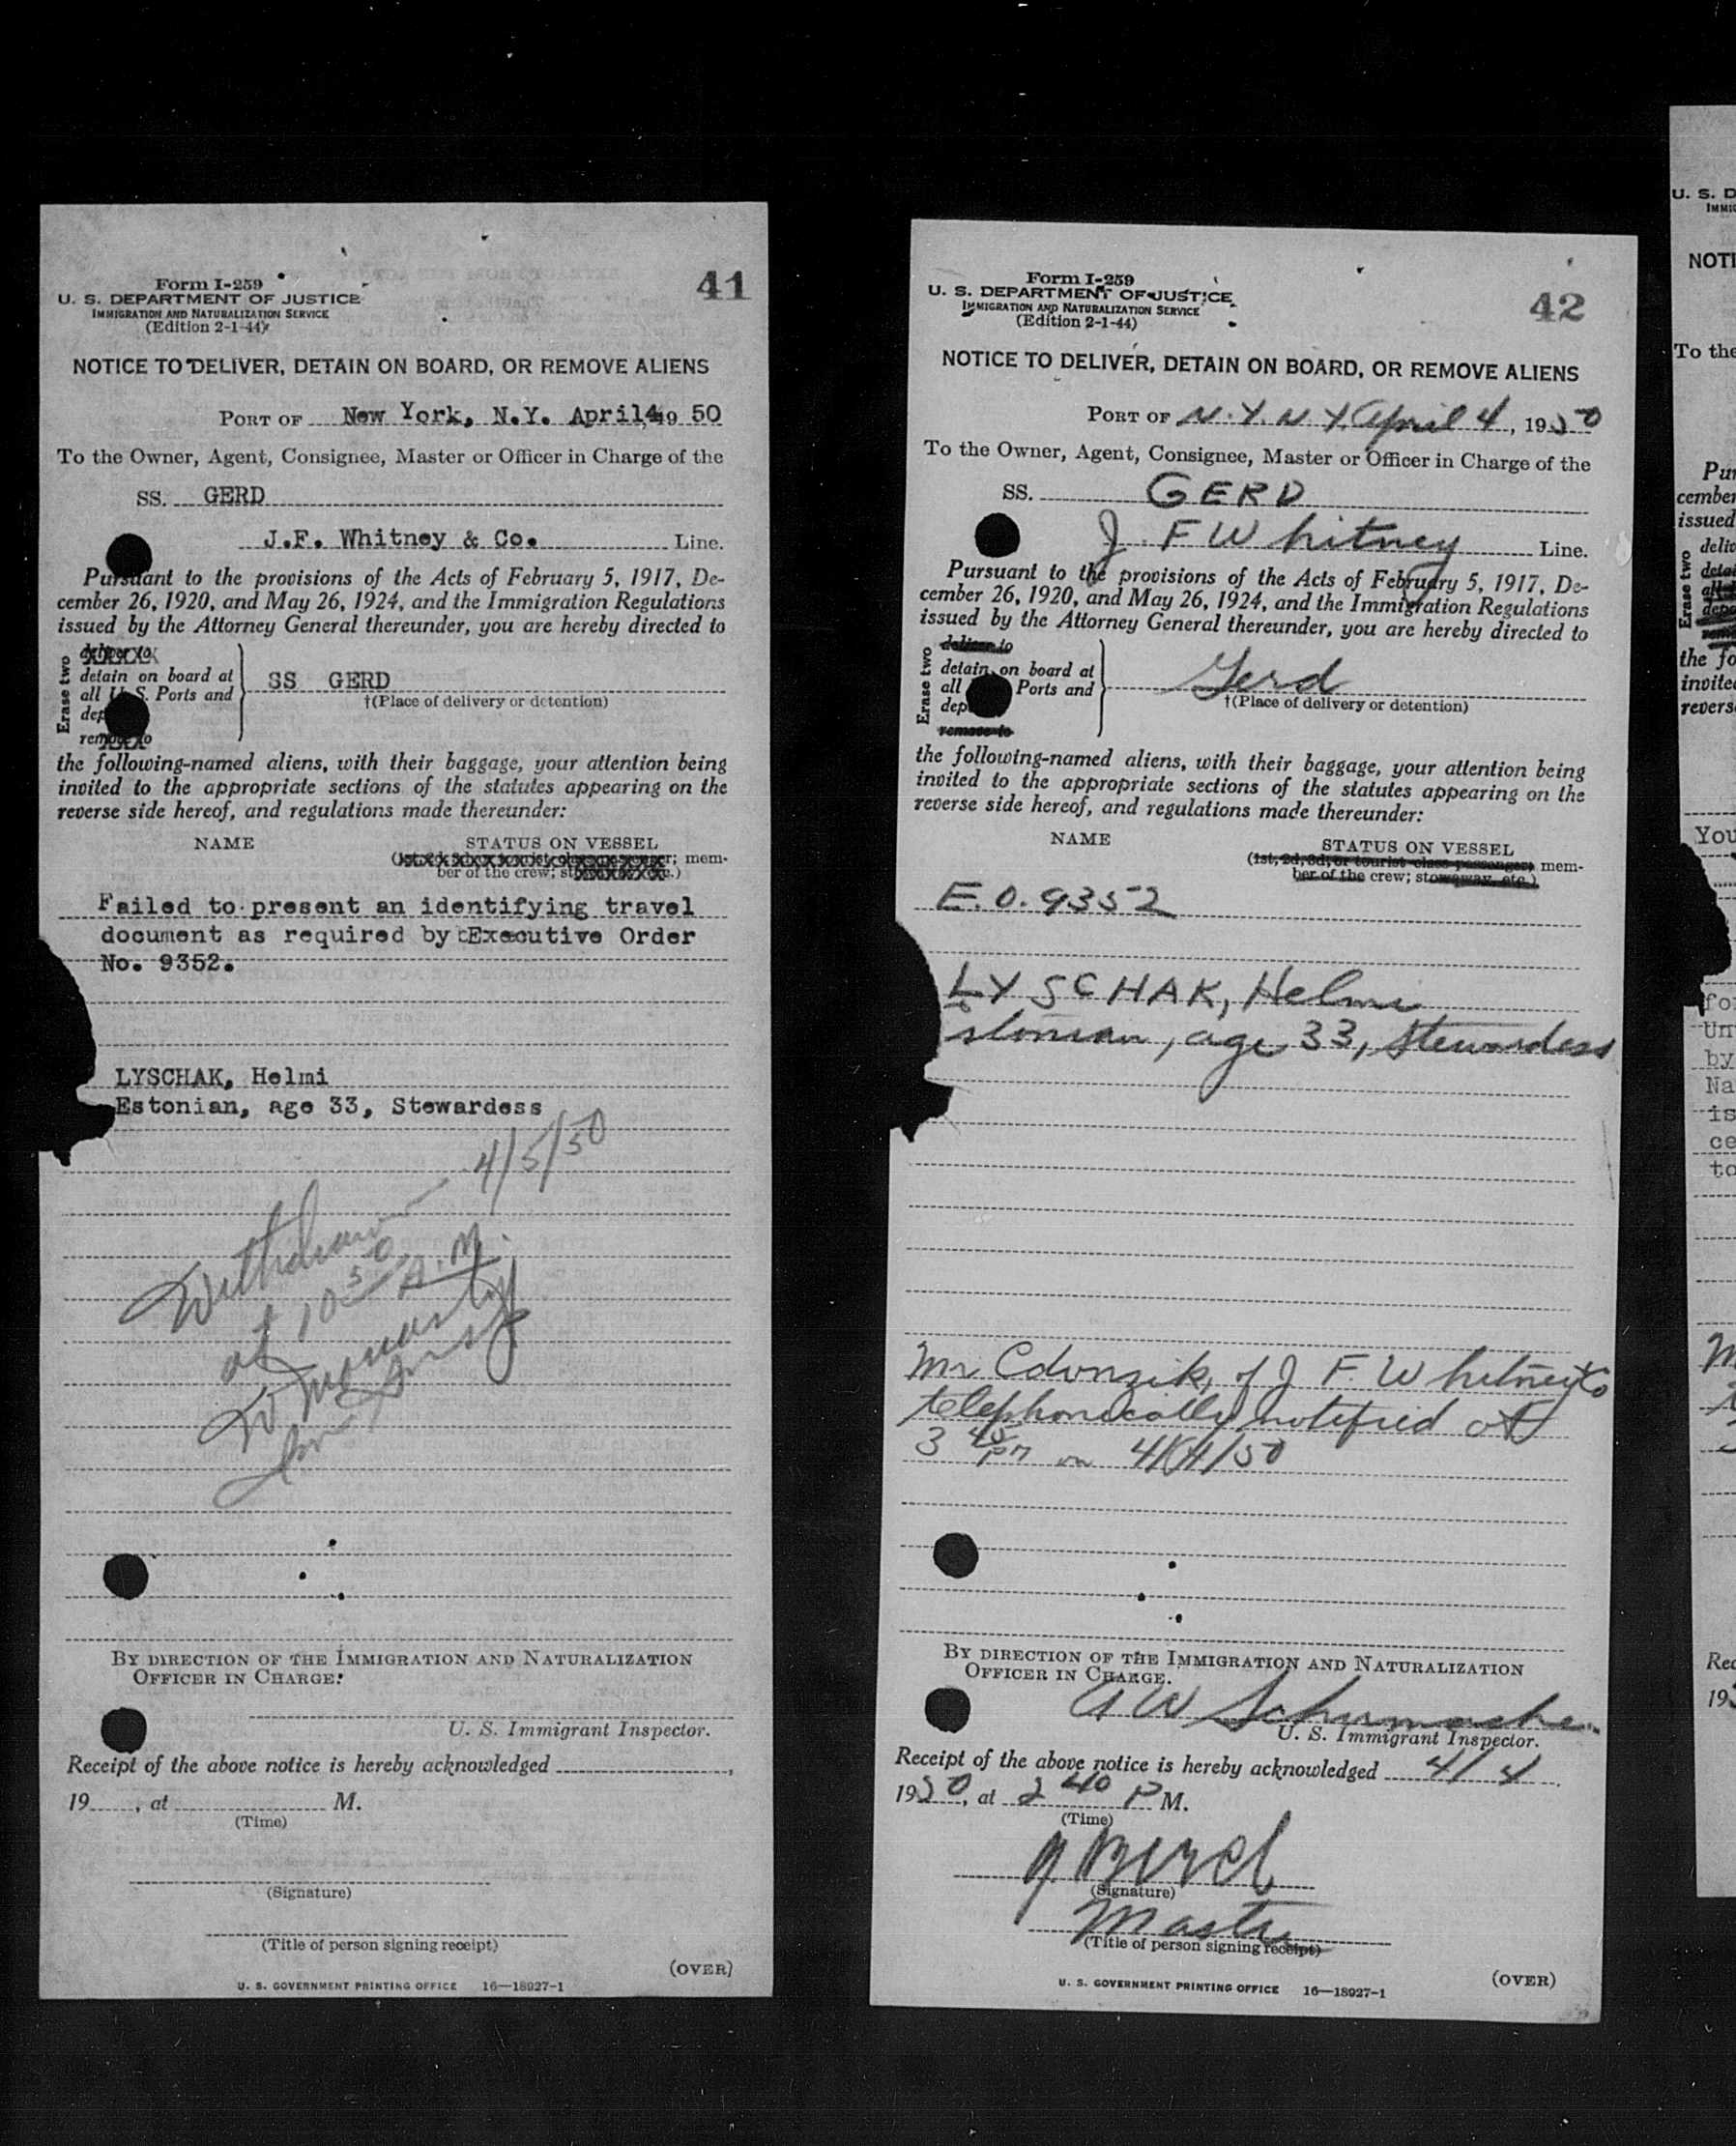 Form I-259
U. S. DEPARTMENT OF JUSTICE
IMMIGRATION AND NATURALIZATION SERVICE
(Edition 2-1-44)
41
NOTICE TO DELIVER, DETAIN ON BOARD, OR REMOVE ALIENS
PORT OF New York, N.Y. April 4, 19 50
To the Owner, Agent, Consignee, Master or Officer in Charge of the
SS. GERD
J.F. Whitney & Co. Line.
Pursuant to the provisions of the Acts of February 5, 1917, De-
cember 26, 1920, and May 26, 1924, and the Immigration Regulations
issued by the Attorney General thereunder, you are hereby directed to
Erase two
deliver to
detain on board at
all U.S. Ports and
dep
remove to
SS GERD
†(Place of delivery or detention)
the following-named aliens, with their baggage, your attention being
invited to the appropriate sections of the statutes appearing on the
reverse side hereof, and regulations made thereunder:
NAME STATUS ON VESSEL
(1st, 2d, 3d, or tourist class passenger; mem-
ber of the crew; stowaway, etc.)
Failed to present an identifying travel
document as required by Executive Order
No. 9352.
LYSCHAK, Helmi
Estonian, age 33, Stewardess
Withdrawn 4/5/50
at 10 30 A.M.
BY DIRECTION OF THE IMMIGRATION AND NATURALIZATION
OFFICER IN CHARGE:
U. S. Immigrant Inspector.
Receipt of the above notice is hereby acknowledged
19 , at M.
(Time)
(Signature)
(Title of person signing receipt)
(OVER)
U. S. GOVERNMENT PRINTING OFFICE 16—18927-1
Form I-259
U. S. DEPARTMENT OF JUSTICE
IMMIGRATION AND NATURALIZATION SERVICE
(Edition 2-1-44)
42
NOTICE TO DELIVER, DETAIN ON BOARD, OR REMOVE ALIENS
PORT OF N.Y. N Y. April 4, 1950
To the Owner, Agent, Consignee, Master or Officer in Charge of the
SS. GERD
J. F Whitney Line.
Pursuant to the provisions of the Acts of February 5, 1917, De-
cember 26, 1920, and May 26, 1924, and the Immigration Regulations
issued by the Attorney General thereunder, you are hereby directed to
Erase two
deliver to
detain on board at
all Ports and
dep
remove to
Gerd
†(Place of delivery or detention)
the following-named aliens, with their baggage, your attention being
invited to the appropriate sections of the statutes appearing on the
reverse side hereof, and regulations made thereunder:
NAME STATUS ON VESSEL
(1st, 2d, 3d, or tourist class passenger; mem-
ber of the crew; stowaway, etc.)
E.O. 9352
LYSCHAK, Helmi
stonian, age 33, Stewardess
Mr of J F. Whitney & Co
telephonically notified at
3 45 PM on 4/4/50
BY DIRECTION OF THE IMMIGRATION AND NATURALIZATION
OFFICER IN CHARGE.
A W Schumacher
U. S. Immigrant Inspector.
Receipt of the above notice is hereby acknowledged 4/4
1950, at 2 40 P M.
(Time)
(Signature)
Master
(Title of person signing receipt)
(OVER)
U. S. GOVERNMENT PRINTING OFFICE 16—18927-1
U. S. D
IMMIG
NOTI
To the
Pur
cember
issued
Erase two
deliv
detai
all
depo
remo
the fo
invited
reverse
You
for
Un
by
Na
is
ce
to
Rec
19